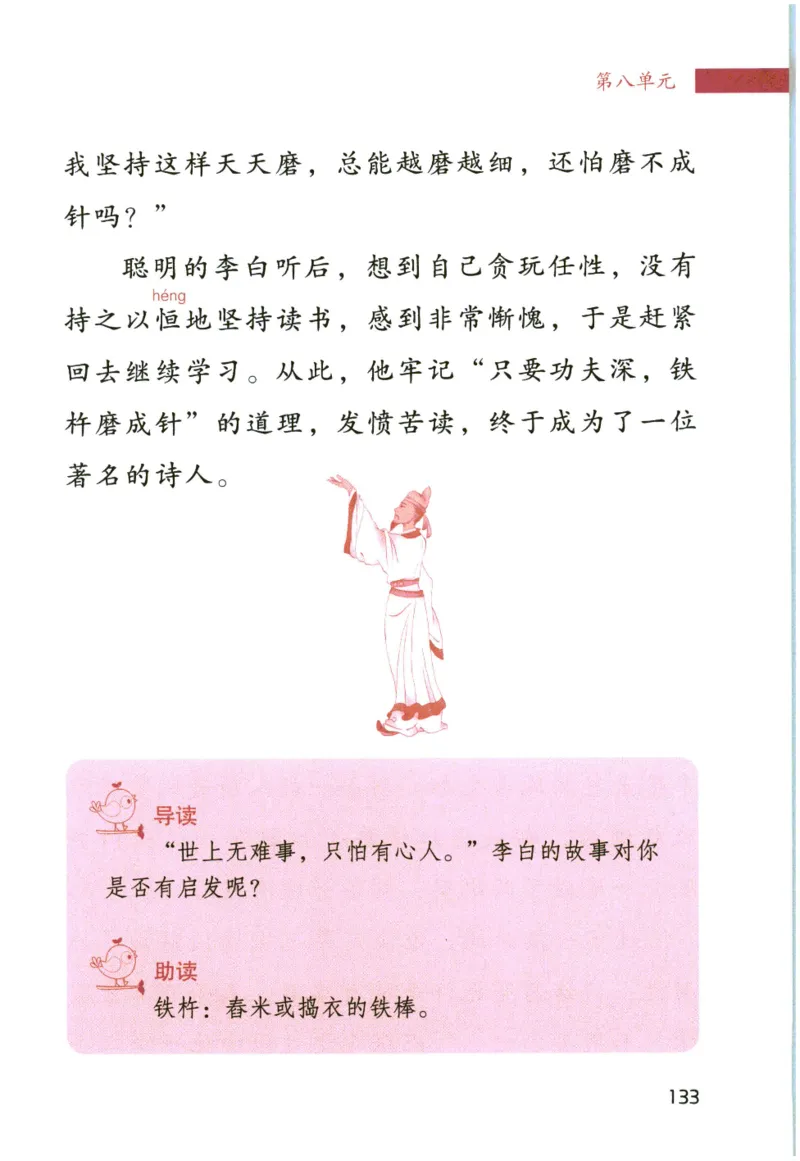 第八单元
我坚持这样天天磨，总能越磨越细，还怕磨不成
针吗？”
聪明的李白听后，想到自己贪玩任性，没有
héng
持之以恒地坚持读书，感到非常惭愧，于是赶紧
回去继续学习。从此，他牢记“只要功夫深，铁
杵磨成针”的道理，发愤苦读，终于成为了一位
著名的诗人。
导读
“世上无难事，只怕有心人。”李白的故事对你
是否有启发呢？
助读
铁杵：舂米或捣衣的铁棒。
133